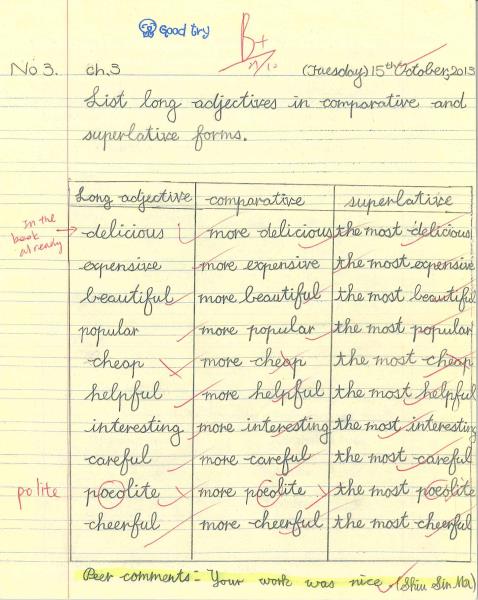 Good try
B+
No 3. ch.3 (Tuesday) 15th October, 2013
List long adjectives in comparative and
superlative forms.
Long adjective comparative superlative
In the book already
delicious more delicious the most delicious
expensive more expensive the most expensive
beautiful more beautiful the most beautiful
popular more popular the most popular
cheap more cheap the most cheap
helpful more helpful the most helpful
interesting more interesting the most interesting
careful more careful the most careful
polite poeolite more poeolite the most poeolite
cheerful more cheerful the most cheerful
Peer comments - Your work was nice. (Shiu Sin Ma)